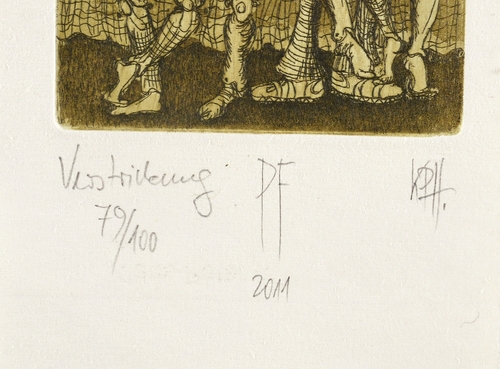 Verstrickung PF
79/100
2011